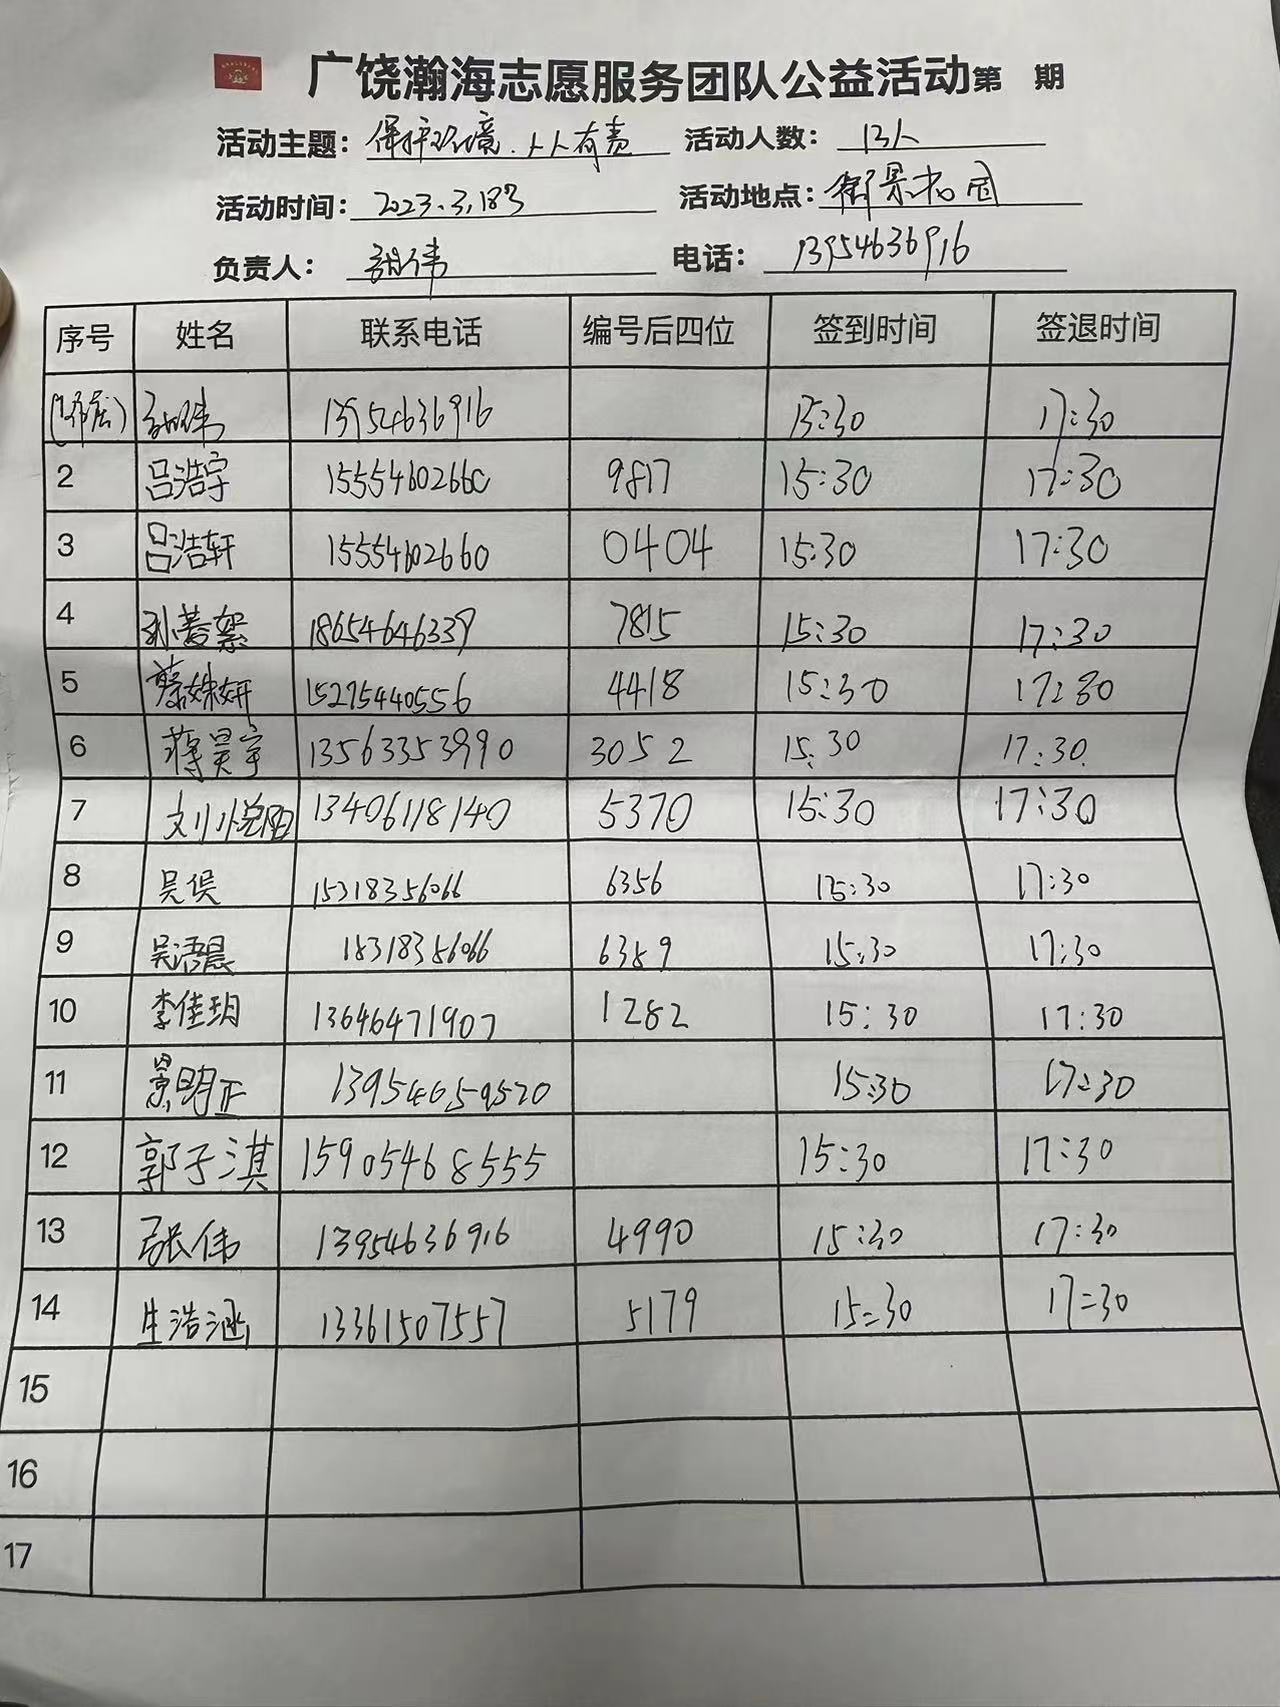 广饶瀚海志愿服务团队公益活动第 期
活动主题：保护环境.人人有责 活动人数：13人
活动时间：2023.3.18号 活动地点：
负责人：胡伟 电话：13954636916
序号 姓名 联系电话 编号后四位 签到时间 签退时间
胡伟 13954636916 15:30 17:30
2 吕浩宇 15554602660 9817 15:30 17:30
3 吕浩轩 15554602660 0404 15:30 17:30
4 18654646339 7815 15:30 17:30
5 蔡姝妍 15275440556 4418 15:30 17:30
6 蒋昊宇 13563353990 3052 15:30 17:30
7 刘小悦阳 13406118140 5370 15:30 17:30
8 吴俣 15318356066 6356 15:30 17:30
9 吴浯晨 18318356066 6389 15:30 17:30
10 李佳玥 13646471907 1282 15:30 17:30
11 景明正 13954659520 15:30 17:30
12 郭子淇 15905468555 15:30 17:30
13 张伟 13954636916 4990 15:30 17:30
14 生浩涵 13361507557 5179 15:30 17:30
15
16
17